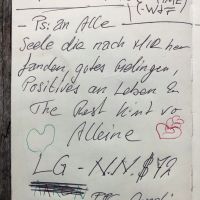 TIME)
(-WDT
- Ps: an Alle
Seele die nach Mir her
fanden, gutes Gelingen,
Positives an Leben &
The Rest kint vo
Alleine
LG - N.N. $72